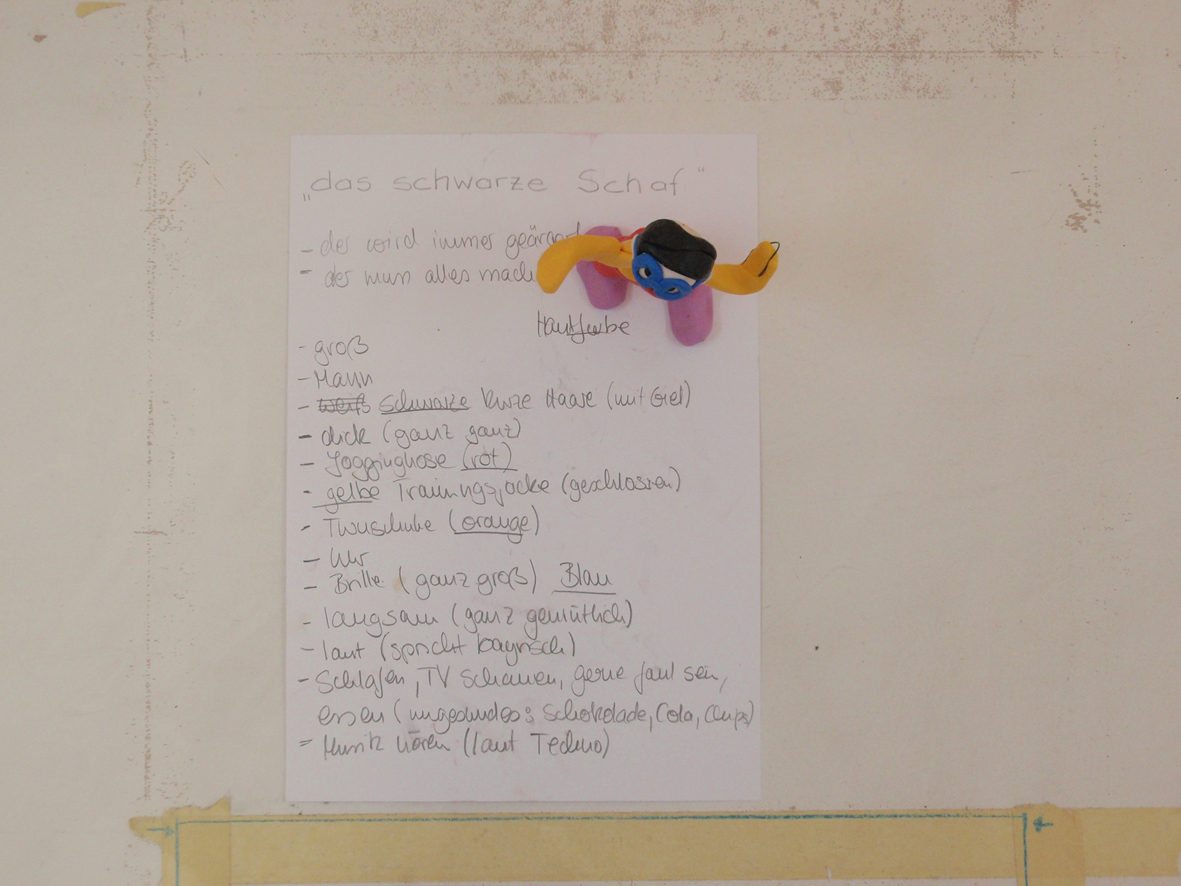 „das schwarze Schaf"
- der wird immer geärgert
- der muss alles mache
Hautfarbe
- groß
- Mann
- weiß schwarze kurze Haare (mit Gel)
- dick (ganz ganz)
- Jogginghose (rot)
- gelbe Trainingsjacke (geschlossen)
- Turnschuhe (orange)
- Uhr
- Brille (ganz groß) Blau
- langsam (ganz gemütlich)
- laut (spricht bayrisch)
- Schlafen, TV schauen, gerne faul sein,
essen (ungesundes: Schokolade, Cola, Chips)
- Musik hören (laut Techno)